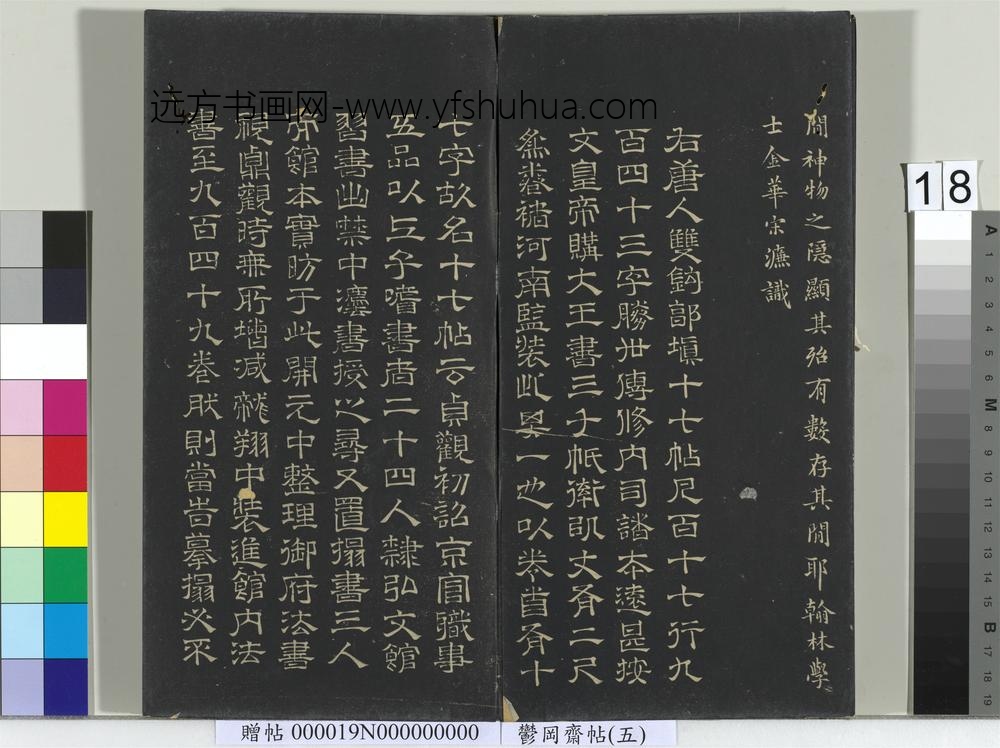 間神物之隱顯其殆有數存其間耶翰林學
士金華宋濂識
右唐人雙鉤部塡十七帖凡百十七行九
百四十三字勝世傳修內司諸本遠甚按
文皇帝購大王書三千帋率以丈有二尺
爲卷褚河南監裝此其一也以卷首有十
七字故名十七帖云貞觀初詔京官職事
五品以上子嗜書者二十四人隸弘文館
習書出禁中灋書授之尋又置搨書三人
館本實昉于此開元中整理御府法書
視貞觀時無所增减龍翔中裝進館內法
書至九百四十九卷狀則當旹摹搨必不
远方书画网-www.yfshuhua.com
18
A 1 2 3 4 5 6 M 8 9 10 11 12 13 14 15 B 17 18 19
贈帖 000019N000000000
鬱岡齋帖(五)